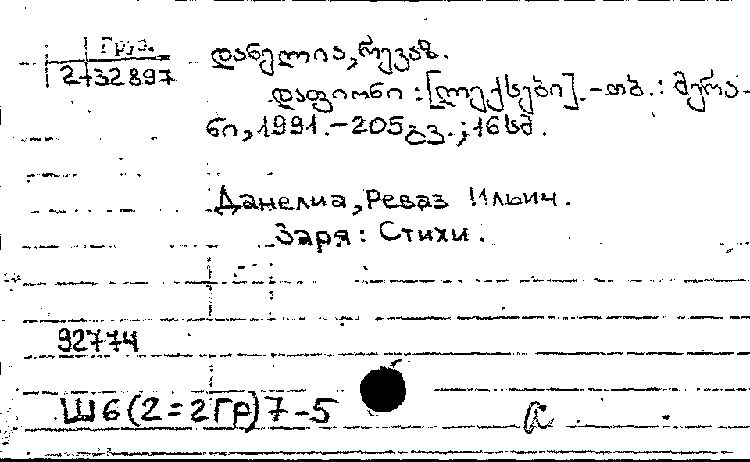 Груз.
2-132897
დანელია, რევაზ.
დაფიონი : [ლექსები]. - თბ. : მერა-
ნი, 1991. - 205 გვ. ; 16 სმ.
Данелиа, Реваз Ильич.
Заря : Стихи.
92774
Ш6(2=2Гр)7-5